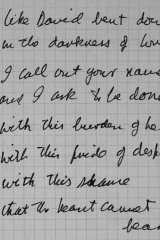 like David bent dow
in the darkness of
I call out your name
and I ask to be done
with this burden of he
with this pride of desp
with this shame
that the heart cannot
bear